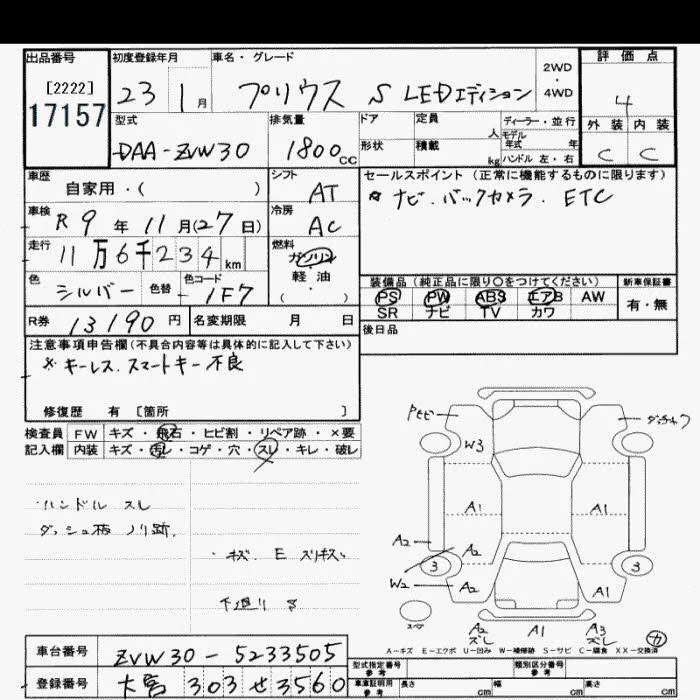 出品番号 初度登録年月 車名・グレード 評価点
[2222]
17157
23 1月 プリウス S LEDエディション 2WD・4WD 4
型式 排気量 ドア 定員 人 ディーラー・並行 外装 内装
DAA-ZVW30 1800cc 形状 積載 kg モデル年式 年 ハンドル 左・右 C C
車歴 シフト セールスポイント(正常に機能するものに限ります)
自家用・( ) AT ナビ.バックカメラ. ETC
車検 R9年11月(27日) 冷房 AC
走行 11万6千234km 燃料 ガソリン 軽・油 ( ・ )
色 シルバー 色替 色コード 1F7
装備品(純正品に限り○をつけてください) 新車保証書
PS PW ABS エアB AW 有・無
SR ナビ TV カワ
R券 13190円 名変期限 月 日 後日品
注意事項申告欄(不具合内容等は具体的に記入して下さい)
※キーレス.スマートキー不良
修復歴 有 [箇所 ]
検査員 FW キズ・飛石・ヒビ割・リペア跡・×要
記入欄 内装 キズ・汚レ・コゲ・穴・スレ・キレ・破レ
・ハンドル スレ
ダッシュ板 ノリ跡.
・キズ. E スリキズ
下廻り サ
W3
A1 A1
A2 A2
3 3
W2 A2 A1
スペア
A2 ズレ A1 A3 ズレ カ
A-キズ E-エクボ U-凹み W-補修跡 S-サビ C-腐食 XX-交換済
車台番号 ZVW30-5233505
型式指定番号 参考 類別区分番号 参考
登録番号 大宮 303 せ 3560
車庫証明用 参考 長さ cm 幅 cm 高さ cm